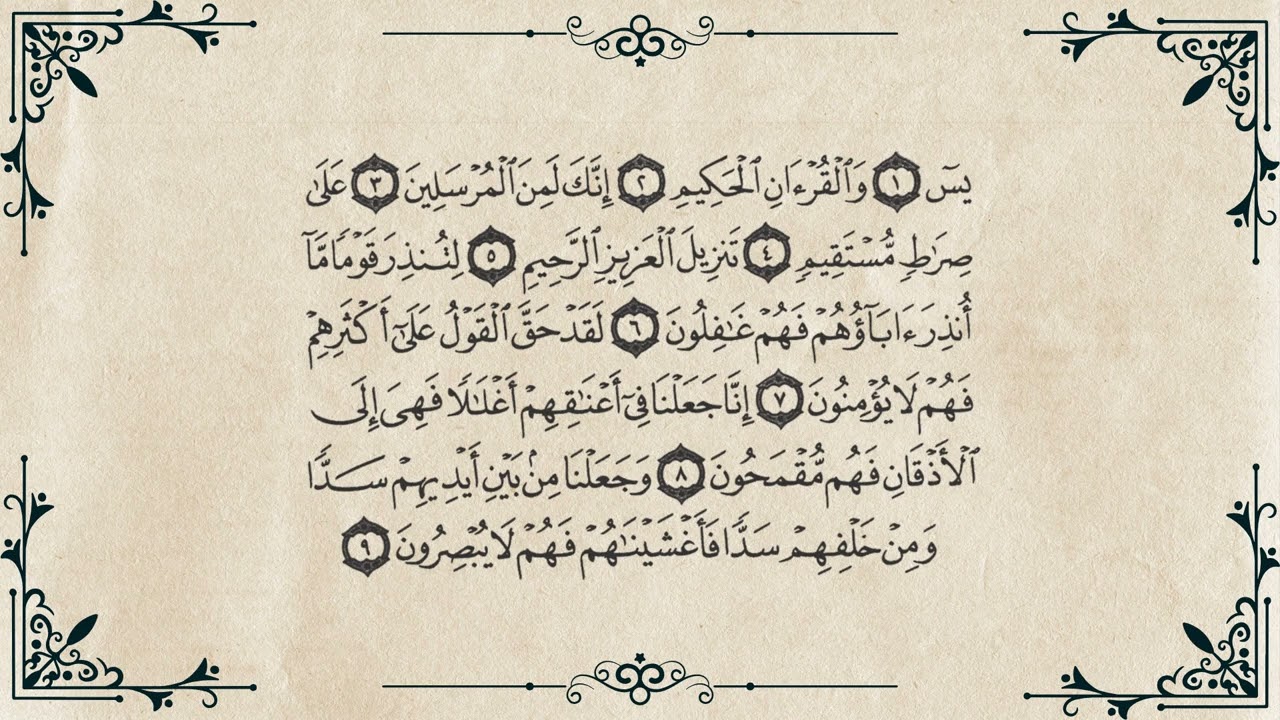 يسٓ ١ وَٱلۡقُرۡءَانِ ٱلۡحَكِيمِ ٢ إِنَّكَ لَمِنَ ٱلۡمُرۡسَلِينَ ٣ عَلَىٰ
صِرَٰطٖ مُّسۡتَقِيمٖ ٤ تَنزِيلَ ٱلۡعَزِيزِ ٱلرَّحِيمِ ٥ لِتُنذِرَ قَوۡمٗا مَّآ
أُنذِرَ ءَابَآؤُهُمۡ فَهُمۡ غَٰفِلُونَ ٦ لَقَدۡ حَقَّ ٱلۡقَوۡلُ عَلَىٰٓ أَكۡثَرِهِمۡ
فَهُمۡ لَا يُؤۡمِنُونَ ٧ إِنَّا جَعَلۡنَا فِيٓ أَعۡنَٰقِهِمۡ أَغۡلَٰلٗا فَهِيَ إِلَى
ٱلۡأَذۡقَانِ فَهُم مُّقۡمَحُونَ ٨ وَجَعَلۡنَا مِنۢ بَيۡنِ أَيۡدِيهِمۡ سَدّٗا
وَمِنۡ خَلۡفِهِمۡ سَدّٗا فَأَغۡشَيۡنَٰهُمۡ فَهُمۡ لَا يُبۡصِرُونَ ٩